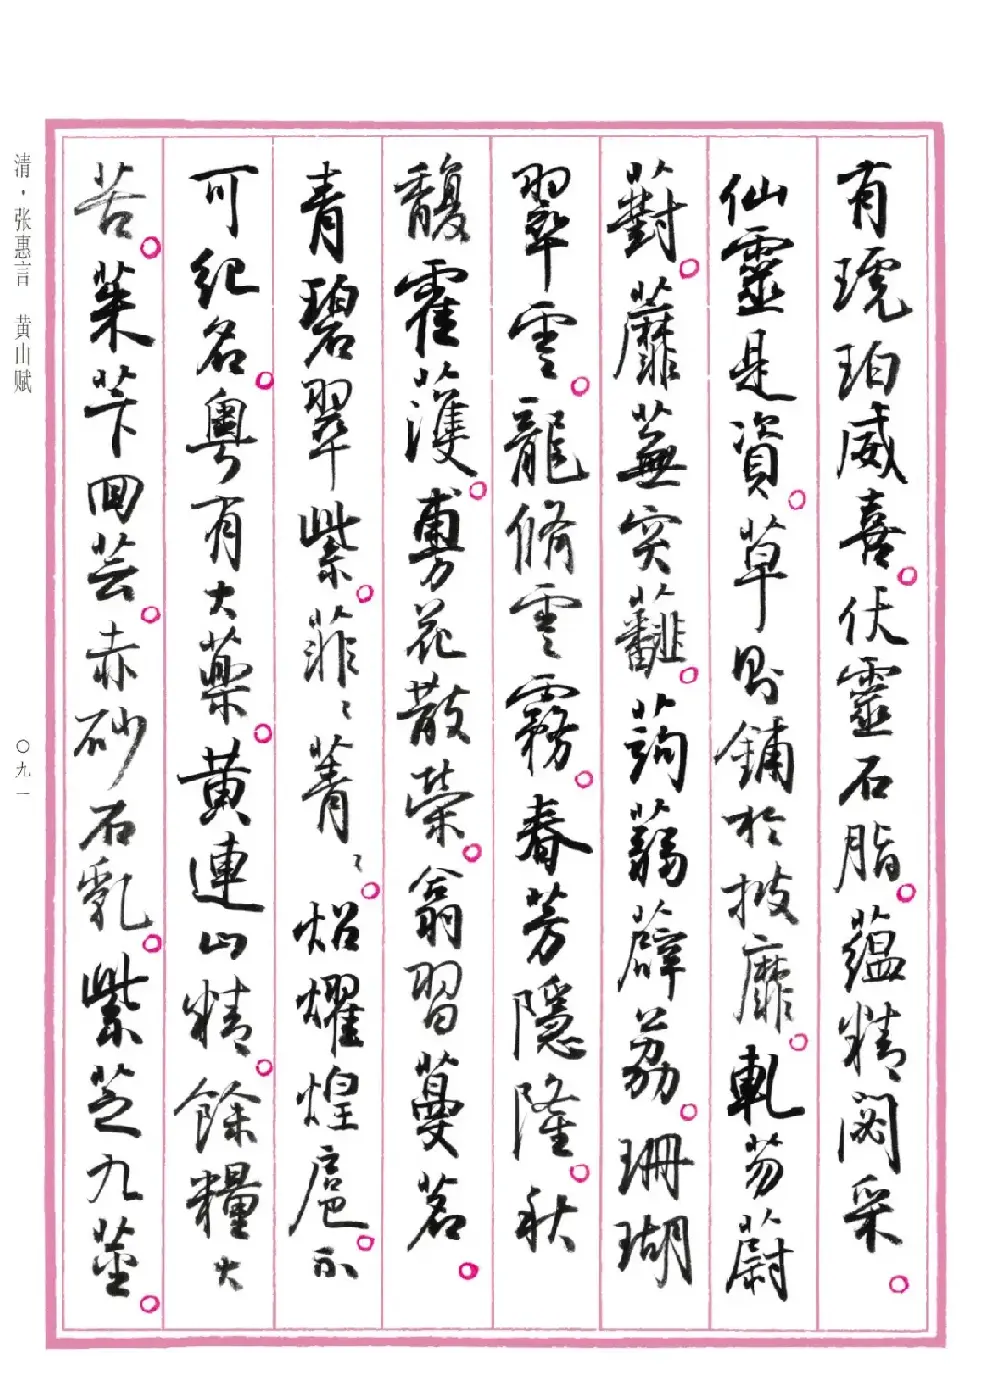 有琥珀威喜。伏靈石脂。蘊精閟采。
仙靈是資。草則鋪於披靡。軋芴蔚
薱。蘼蕪突蘿。蒟蒻薜荔。珊瑚
翠雲。龍脩雲霧。春芳隱隆。秋
馥霍濩。旉花散榮。翕習蔓茗。
青碧翠紫。菲〻菁〻。炤燿煌扈。不
可紀名。粵有大藥。黄連山精。餘糧大
苦。茱芐回芸。赤砂石乳。紫芝九莖。
清·张惠言 黄山赋
〇九一